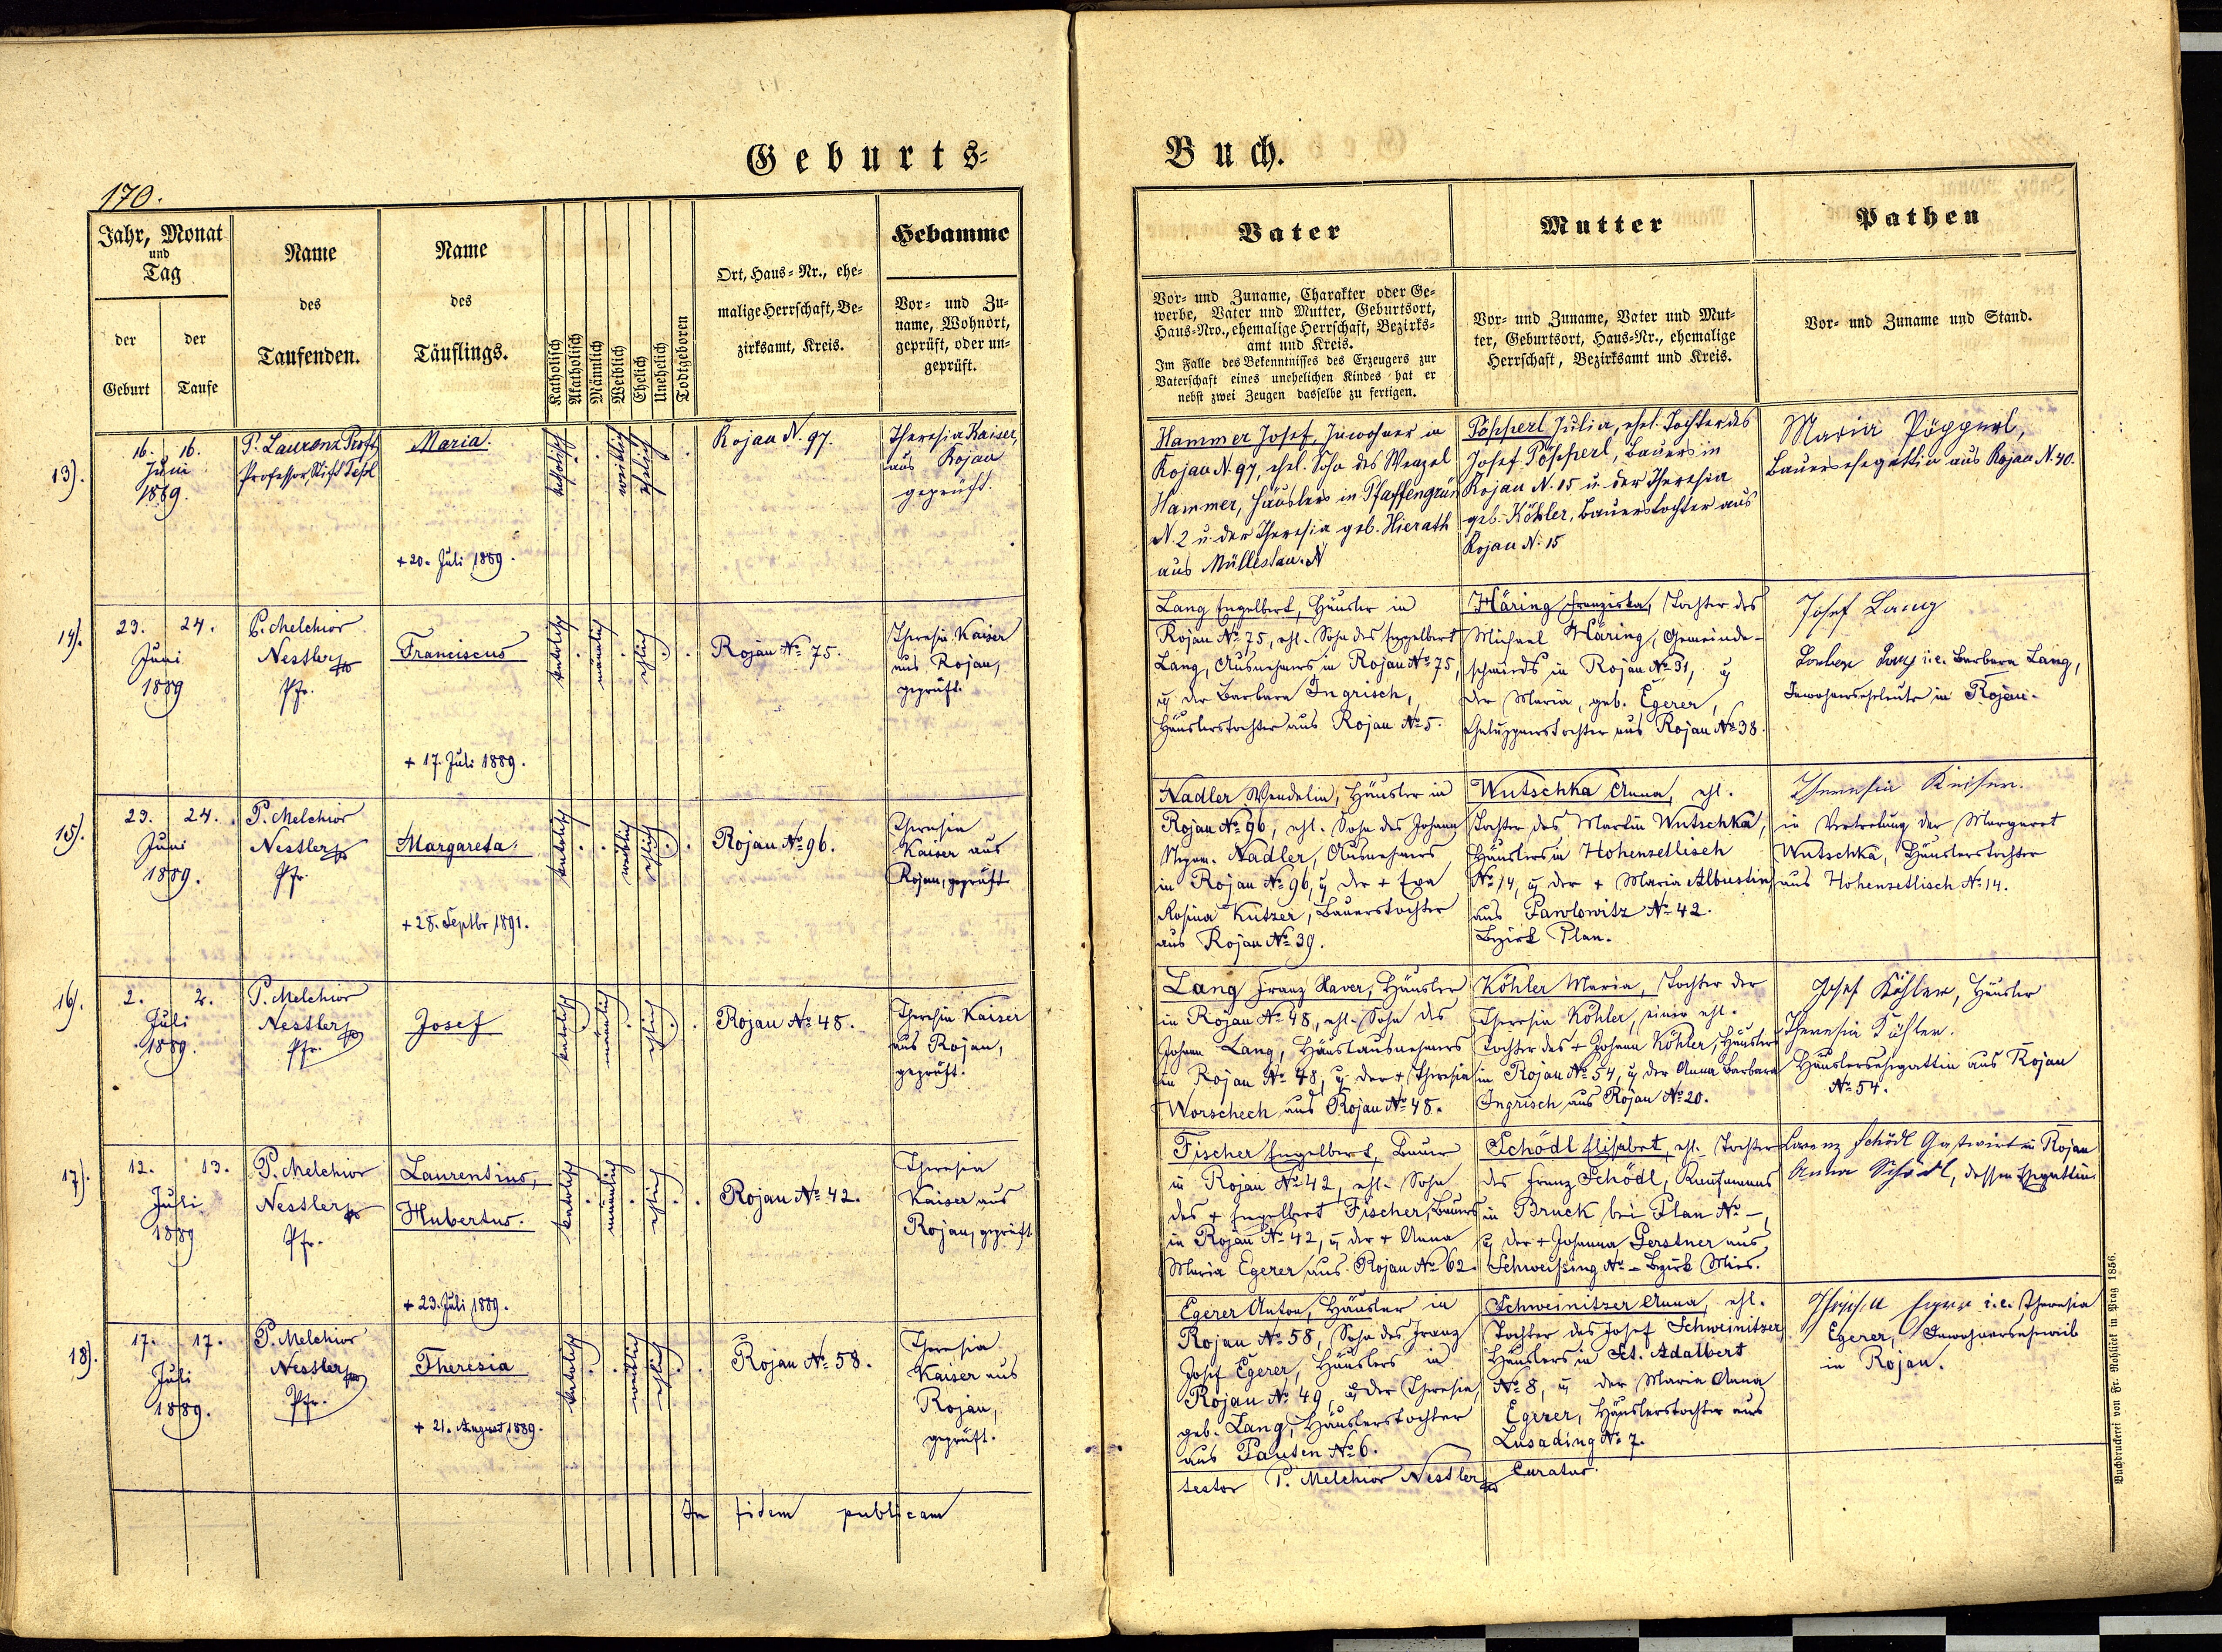 Geburts-
Buch.
170.
Jahr, Monat
und
Tag
der
Geburt
der
Taufe
Name
des
Taufenden.
Name
des
Täuflings.
Katholisch
Akatholisch
Männlich
Weiblich
Ehelich
Unehelich
Todtgeboren
Ort, Haus-Nr., ehe-
malige Herrschaft, Be-
zirksamt, Kreis.
Hebamme
Vor- und Zu-
name, Wohnort,
geprüft, oder un-
geprüft.
Vater
Vor- und Zuname, Charakter oder Ge-
werbe, Vater und Mutter, Geburtsort,
Haus-Nro., ehemalige Herrschaft, Bezirks-
amt und Kreis.
Im Falle des Bekenntnisses des Erzeugers zur
Vaterschaft eines unehelichen Kindes hat er
nebst zwei Zeugen dasselbe zu fertigen.
Mutter
Vor- und Zuname, Vater und Mut-
ter, Geburtsort, Haus-Nr., ehemalige
Herrschaft, Bezirksamt und Kreis.
Pathen
Vor- und Zuname und Stand.
13).
16. 16.
Juni
1889.
P. Laurenz
Professor, Stift Tepl
Maria.
+ 20. Juli 1889.
katholisch
weiblich
ehelich
Rojau N. 97.
Theresia Kaiser,
aus Rojau
geprüft.
Hammer Josef, Inwohner in
Rojau N. 97, ehel. Sohn des Wenzel
Hammer, Häuslers in Pfaffengrün
N. 2 u. der Theresia geb. Hierath
aus Müllestau. N
Pöpperl Julia, ehel. Tochter des
Josef Pöpperl, Bauers in
Rojau N. 15 u. der Theresia
geb. Köhler, Bauerstochter aus
Rojau N. 15
Maria Pöpperl,
Bauersehegattin aus Rojau N. 40.
14).
23. 24.
Juni
1889
P. Melchior
Nestler
Pfr.
Franciscus
+ 17. Juli 1889.
katholisch
männlich
ehlich
Rojau No 75.
Theresia Kaiser
aus Rojau,
geprüft.
Lang Engelbert, Häusler in
Rojau No 75, ehl. Sohn des Engelbert
Lang, Ausnehmers in Rojau No 75,
u der Barbara Ingrisch,
Häuslerstochter aus Rojau No 5.
Häring Franziska, Tochter des
Michael Häring, Gemeinde-
schmieds in Rojau No 31, u
der Maria, geb. Egerer,
Chaluppnerstochter aus Rojau No 38.
Josef Lang
i.e. Barbara Lang,
Inwohnerseheleute in Rojau.
15).
23. 24.
Juni
1889.
P. Melchior
Nestler
Pfr.
Margareta.
+ 28. Septbr 1891.
katholisch
weiblich
ehlich
Rojau No 96.
Theresia
Kaiser aus
Rojau, geprüft
Nadler Wendelin, Häusler in
Rojau No 96, ehl. Sohn des Johann
Nepom. Nadler, Ausnehmers
in Rojau No 96, u der + Eva
Rosina Kutzer, Bauerstochter
aus Rojau No 39.
Wutschka Anna, ehl.
Tochter des Martin Wutschka,
Häuslers in Hohenzetlisch
No 14, u der + Maria Albustin,
aus Pawlowitz No 42.
Bezirk Plan.
Theresia Keiser.
in Vertretung der Margaret
Wutschka, Häuslerstochter
aus Hohenzetlisch No 14.
16).
2. 2.
Juli
1889.
P. Melchior
Nestler
Pfr.
Josef
katholisch
männlich
ehlich
Rojau No 48.
Theresia Kaiser
aus Rojau,
geprüft.
Lang Franz Xaver, Häusler
in Rojau No 48, ehl. Sohn des
Johann Lang, Häuslausnehmers
in Rojau No 48, u der + Theresia
Worschech aus Rojau No 48.
Köhler Maria, Tochter der
Theresia Köhler, einer ehl.
Tochter des + Johann Köhler, Häuslers
in Rojau No 54, u der Anna Barbara
Ingrisch aus Rojau No 20.
Josef Köhler, Häusler
Theresia Köhler.
Häuslersehegattin aus Rojau
No 54.
17).
12. 13.
Juli
1889
P. Melchior
Nestler
Pfr.
Laurentius,
Hubertus.
+ 23. Juli 1889.
katholisch
männlich
ehlich
Rojau No 42.
Theresia
Kaiser aus
Rojau, geprüft
Fischer Engelbert, Bauer
in Rojau No 42, ehl. Sohn
des + Engelbert Fischer, Bauers
in Rojau No 42, u der + Anna
Maria Egerer aus Rojau No 62.
Schödl Elisabet, ehl. Tochter
des Franz Schödl, Kaufmanns
in Bruck bei Plan No -,
u der + Johanna Gerstner aus
Schweißing No - Bezirk Mies.
Lorenz Schödl Gastwirt in Rojau
Anna Schödl, dessen Ehegattin.
18).
17. 17.
Juli
1889.
P. Melchior
Nestler
Pfr.
Theresia
+ 21. August 1889.
katholisch
weiblich
ehlich
Rojau No 58.
Theresia
Kaiser aus
Rojau,
geprüft.
Egerer Anton, Häusler in
Rojau No 58, Sohn des Franz
Josef Egerer, Häuslers in
Rojau No 49, u der Theresia,
geb. Lang, Häuslerstochter
aus Pauten No 6.
Schweinitzer Anna, ehl.
Tochter des Josef Schweinitzer
Häuslers in Sct. Adalbert
No 8, u der Maria Anna
Egerer, Häuslerstochter aus
Lusading No 7.
i.e. Theresia
Egerer, Inwohnersehweib
in Rojau.
In fidem publicam
testor P. Melchior Nestler Curatus.
Buchdruckerei von Fr. Rohlicek in Prag 1856.